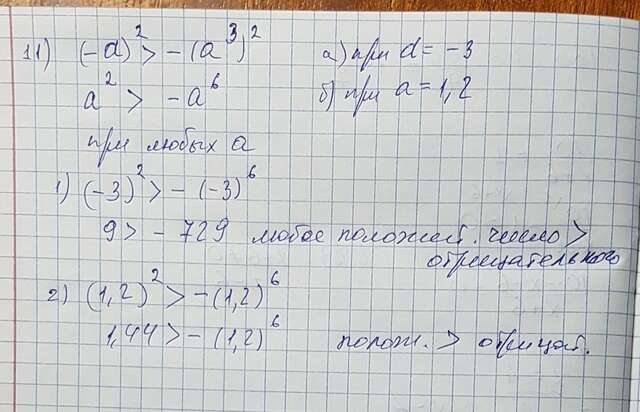 11) (-a)² > -(a³)² а) при a = -3
a² > -a⁶ б) при a = 1,2
при любых a
1) (-3)² > -(-3)⁶
9 > -729 любое положит. число >
отрицательного
2) (1,2)² > -(1,2)⁶
1,44 > -(1,2)⁶ полож. > отрицат.